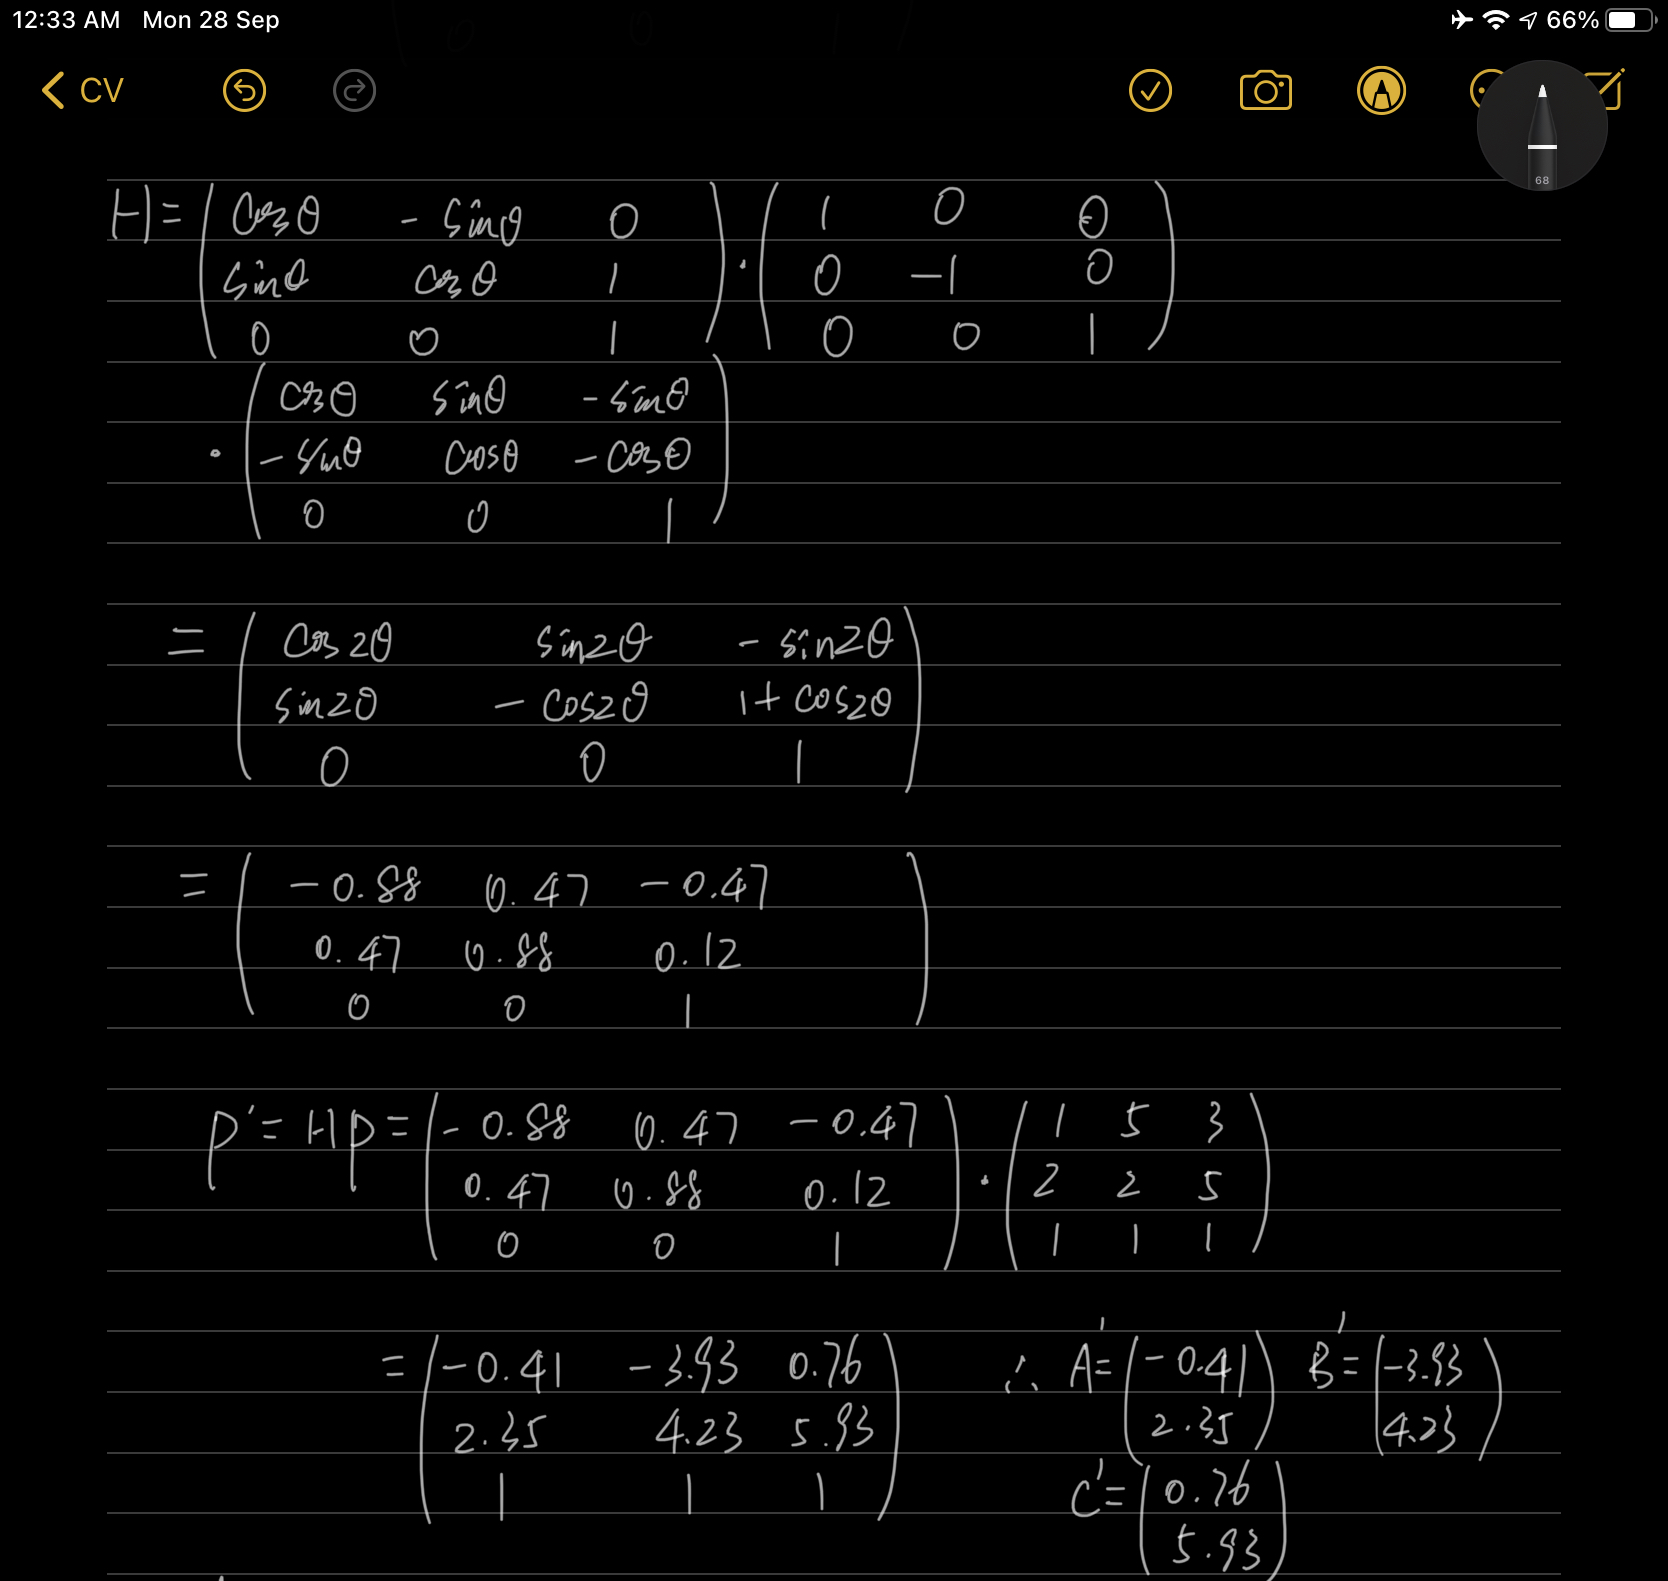 12:33 AM Mon 28 Sep 66%
CV
68
H = ( cosθ -sinθ 0 ) · ( 1 0 0 )
( sinθ cosθ 1 ) ( 0 -1 0 )
( 0 0 1 ) ( 0 0 1 )
· ( cosθ sinθ -sinθ )
( -sinθ cosθ -cosθ )
( 0 0 1 )
= ( cos2θ sin2θ -sin2θ )
( sin2θ -cos2θ 1+cos2θ )
( 0 0 1 )
= ( -0.88 0.47 -0.47 )
( 0.47 0.88 0.12 )
( 0 0 1 )
p' = Hp = ( -0.88 0.47 -0.47 ) · ( 1 5 3 )
( 0.47 0.88 0.12 ) ( 2 2 5 )
( 0 0 1 ) ( 1 1 1 )
= ( -0.41 -3.93 0.76 ) ∴ A' = ( -0.41 ) B' = ( -3.93 )
( 2.35 4.23 5.93 ) ( 2.35 ) ( 4.23 )
( 1 1 1 ) C' = ( 0.76 )
( 5.93 )